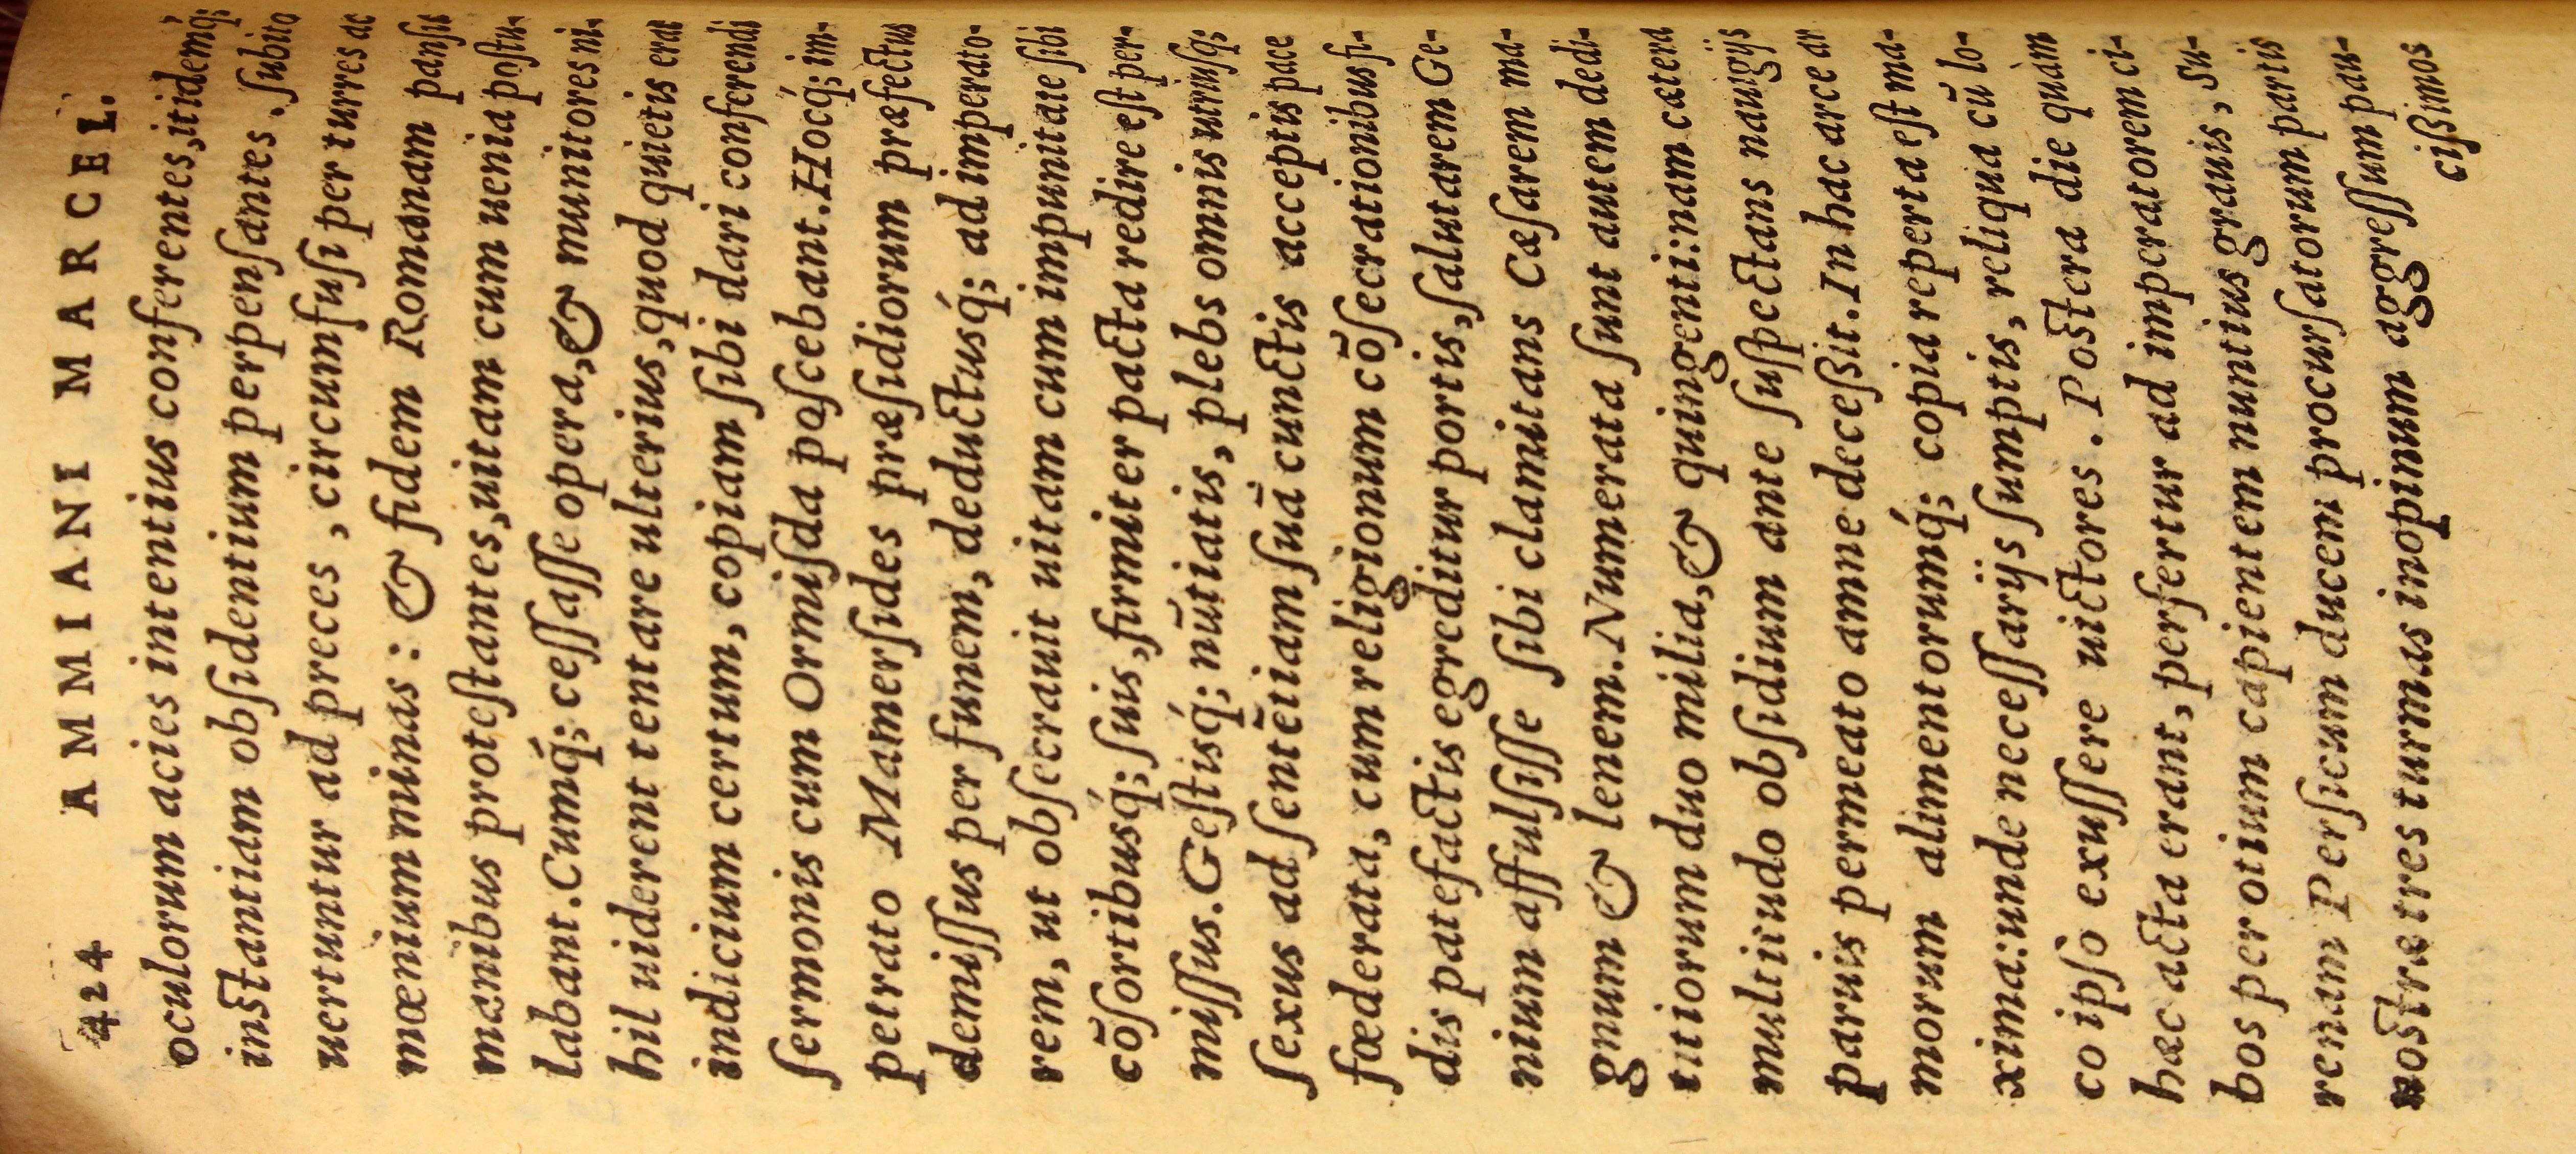 424 AMMIANI MARCEL.
oculorum acies intentius conferentes, itidemq́;
instantiam obſidentium perpenſantes. ſubito
uertuntur ad preces, circunfuſi per turres ac
mœnium minas: & fidem Romanam panſis
manibus proteſtantes, uitam cum uenia poſtu-
labant. Cumq́; ceſſaſſe opera, & munitores ni-
hil uiderent tentare ulterius, quod quietis erat
indicium certum, copiam ſibi dari conferendi
ſermonis cum Ormiſda poſcebant. Hocq́; im-
petrato Mamerſides præſidiorum præfectus
demiſſus per funem, deductusq́; ad imperato-
rem, ut obſecrauit uitam cum impunitate ſibi
cõſortibusq́; ſuis, firmiter pacta redire eſt per-
miſſus. Geſtisq́; nũtiatis, plebs omnis utriuſq;
ſexus ad ſentẽtiam ſuã cunctis acceptis pace
fœderata, cum religionum cõſecrationibus fi-
dis patefactis egreditur portis, ſalutarem Ge-
nium affulſiſſe ſibi clamitans Cæſarem ma-
gnum & lenem. Numerata ſunt autem dedi-
titiorum duo milia, & quingenti: nam cætera
multitudo obſidium ante ſuſpectans nauigijs
paruis permeato amne deceßit. In hac arce ar
morum alimentorumq́; copia reperta eſt ma-
xima: unde neceſſarijs ſumptis, reliqua cũ lo-
co ipſo exuſſere uictores. Postera die quàm
hæc acta erant, perfertur ad imperatorem ci-
bos per otium capientem nuntius grauis, Su-
renam Perſicum ducem procurſatorum partis
nostræ tres turmas inopinum aggreſſum pau-
cißimos